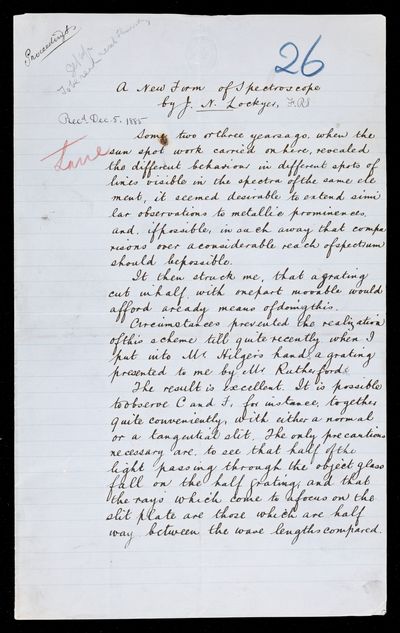 Proceedings
To be read next Thursday
26
A New Form of Spectroscope
by J. N. Lockyer, F.R.S
Recd. Dec. 5. 1885
Some two or three years ago, when the
sun spot work carried on here, revealed
the different behaviour in different spots of
lines visible in the spectra of the same ele
ment, it seemed desirable to extend simi
lar observations to metallic prominences
and, if possible, in such a way that compa
risons over a considerable reach of spectrum
should be possible.
It then struck me, that a grating
cut in half, with one part movable would
afford a ready means of doing this.
Circumstances prevented the realization
of this scheme till quite recently when I
put into Mr Hilger's hands a grating
presented to me by Mr Rutherford.
The result is excellent. It is possible
to observe C and F, for instance, together
quite conveniently, with either a normal
or a tangential slit. The only precautions
necessary are, to see that half of the
light passing through the object glass
fall on the half grating, and that
the rays which come to a focus on the
slit plate are those which are half
way between the wave lengths compared.